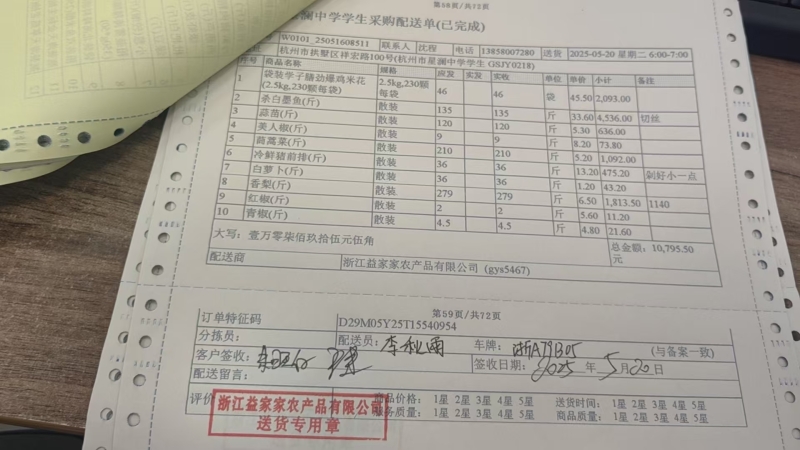 第58页/共72页
澜中学学生采购配送单(已完成)
W0101_25051608511 联系人 沈程 电话 13858007280 送货 2025-05-20 星期二 6:00-7:00
杭州市拱墅区祥宏路100号(杭州市星澜中学学生 GSJY0218)
序号 商品名称 规格 应发 实发 实收 单位 单价 小计 备注
1 袋装学子膳劲爆鸡米花(2.5kg,230颗每袋) 2.5kg,230颗每袋 46 46 袋 45.50 2,093.00
2 杀白墨鱼(斤) 散装 135 135 斤 33.60 4,536.00 切丝
3 蒜苗(斤) 散装 120 120 斤 5.30 636.00
4 美人椒(斤) 散装 9 9 斤 8.20 73.80
5 茼蒿菜(斤) 散装 210 210 斤 5.20 1,092.00
6 冷鲜猪前排(斤) 散装 36 36 斤 13.20 475.20 剁好小一点
7 白萝卜(斤) 散装 36 36 斤 1.20 43.20
8 香梨(斤) 散装 279 279 斤 6.50 1,813.50 1140
9 红椒(斤) 散装 2 2 斤 5.60 11.20
10 青椒(斤) 散装 4.5 4.5 斤 4.80 21.60
大写：壹万零柒佰玖拾伍元伍角 总金额：10,795.50元
配送商 浙江益家家农产品有限公司 (gys5467)
第59页/共72页
订单特征码 D29M05Y25T15540954
分拣员： 配送员：李秋雨 车牌：浙A79B05 (与备案一致)
客户签收： 签收日期：2025年5月20日
配送留言：
评价 商品价格： 1星 2星 3星 4星 5星 送货时间： 1星 2星 3星 4星 5星
服务质量： 1星 2星 3星 4星 5星 商品质量： 1星 2星 3星 4星 5星
浙江益家家农产品有限公司
送货专用章